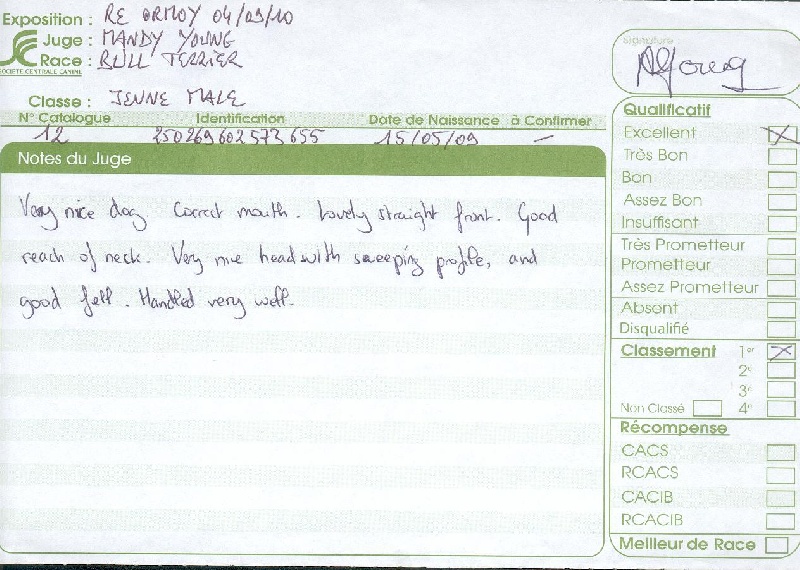 Exposition : RE ORMOY 04/09/10
Juge : MANDY YOUNG
Race : BULL TERRIER
SOCIETE CENTRALE CANINE
Classe : JEUNE MALE
N° Catalogue Identification Date de Naissance à Confirmer
12 250269602573655 15/05/09 —
Notes du Juge
Very nice dog. Correct mouth. Lovely straight front. Good
reach of neck. Very nice head with sweeping profile, and
good fill. Handled very well.
Signature
Qualificatif
Excellent X
Très Bon
Bon
Assez Bon
Insuffisant
Très Prometteur
Prometteur
Assez Prometteur
Absent
Disqualifié
Classement 1er X
2e
3e
Non Classé 4e
Récompense
CACS
RCACS
CACIB
RCACIB
Meilleur de Race